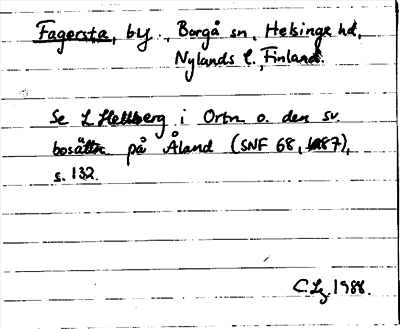 Fagersta, by., Borgå sn, Helsinge hd,
Nylands l., Finland.
Se L Hellberg i Ortn o. den sv.
bosättn på Åland (SNF 68, 1987),
s. 132.
C.Lg. 1988.